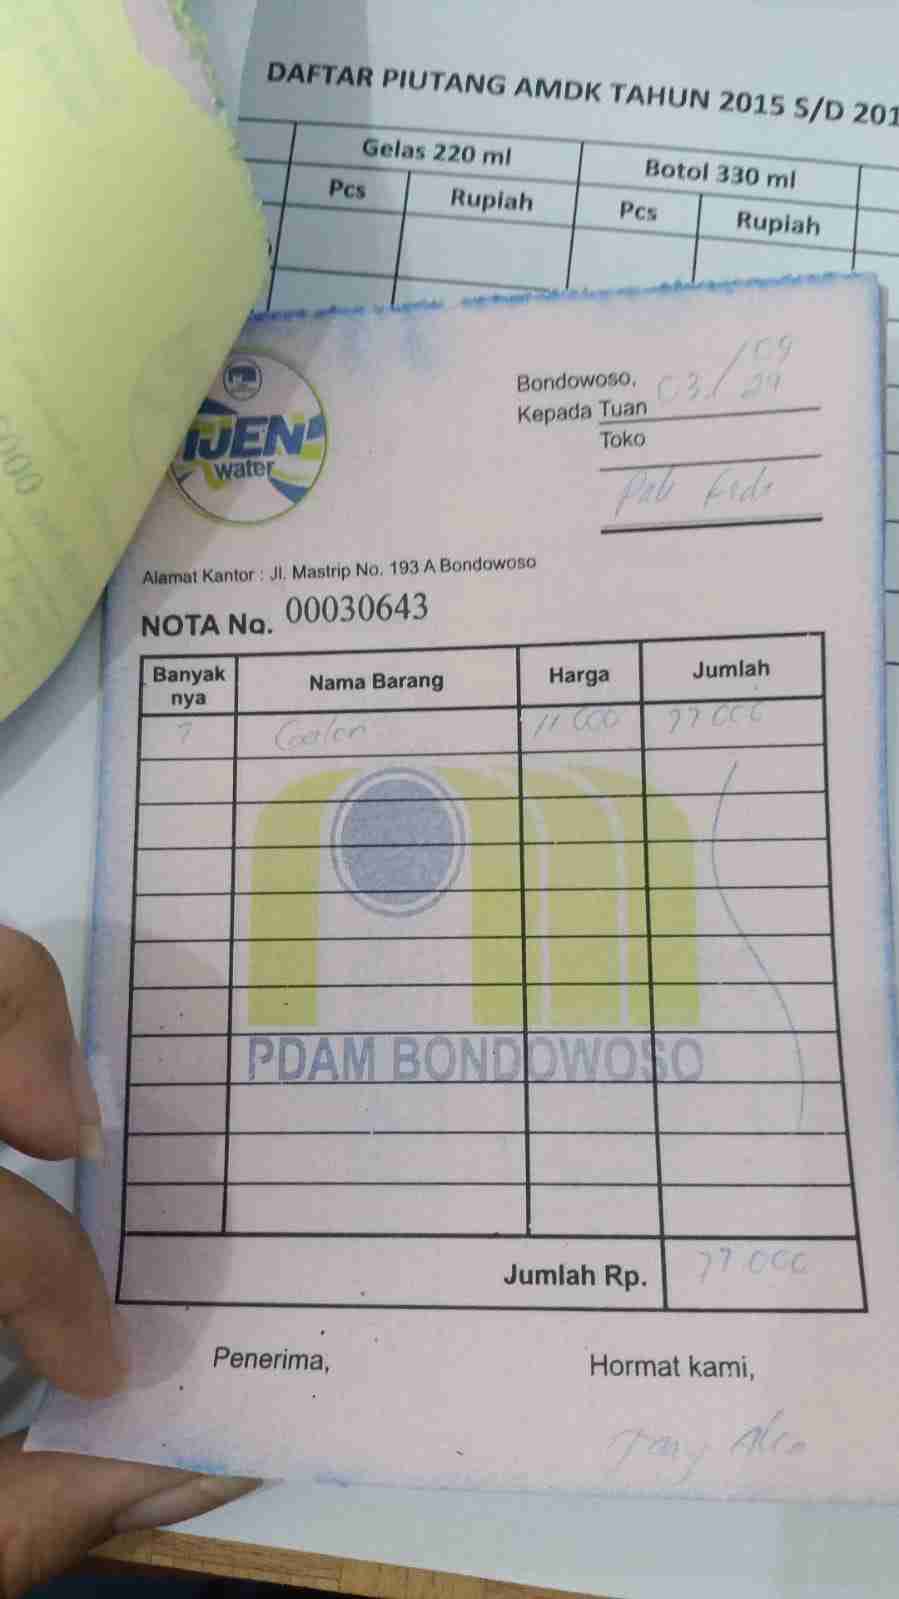 DAFTAR PIUTANG AMDK TAHUN 2015 S/D 201
Gelas 220 ml Botol 330 ml
Pcs Rupiah Pcs Rupiah
5000
IJEN
water
Bondowoso, 03/09
24
Kepada Tuan
Toko
Pak
Alamat Kantor : Jl. Mastrip No. 193 A Bondowoso
NOTA No. 00030643
Banyak nya Nama Barang Harga Jumlah
7 11 000 77 000
PDAM BONDOWOSO
Jumlah Rp. 77 000
Penerima, Hormat kami,